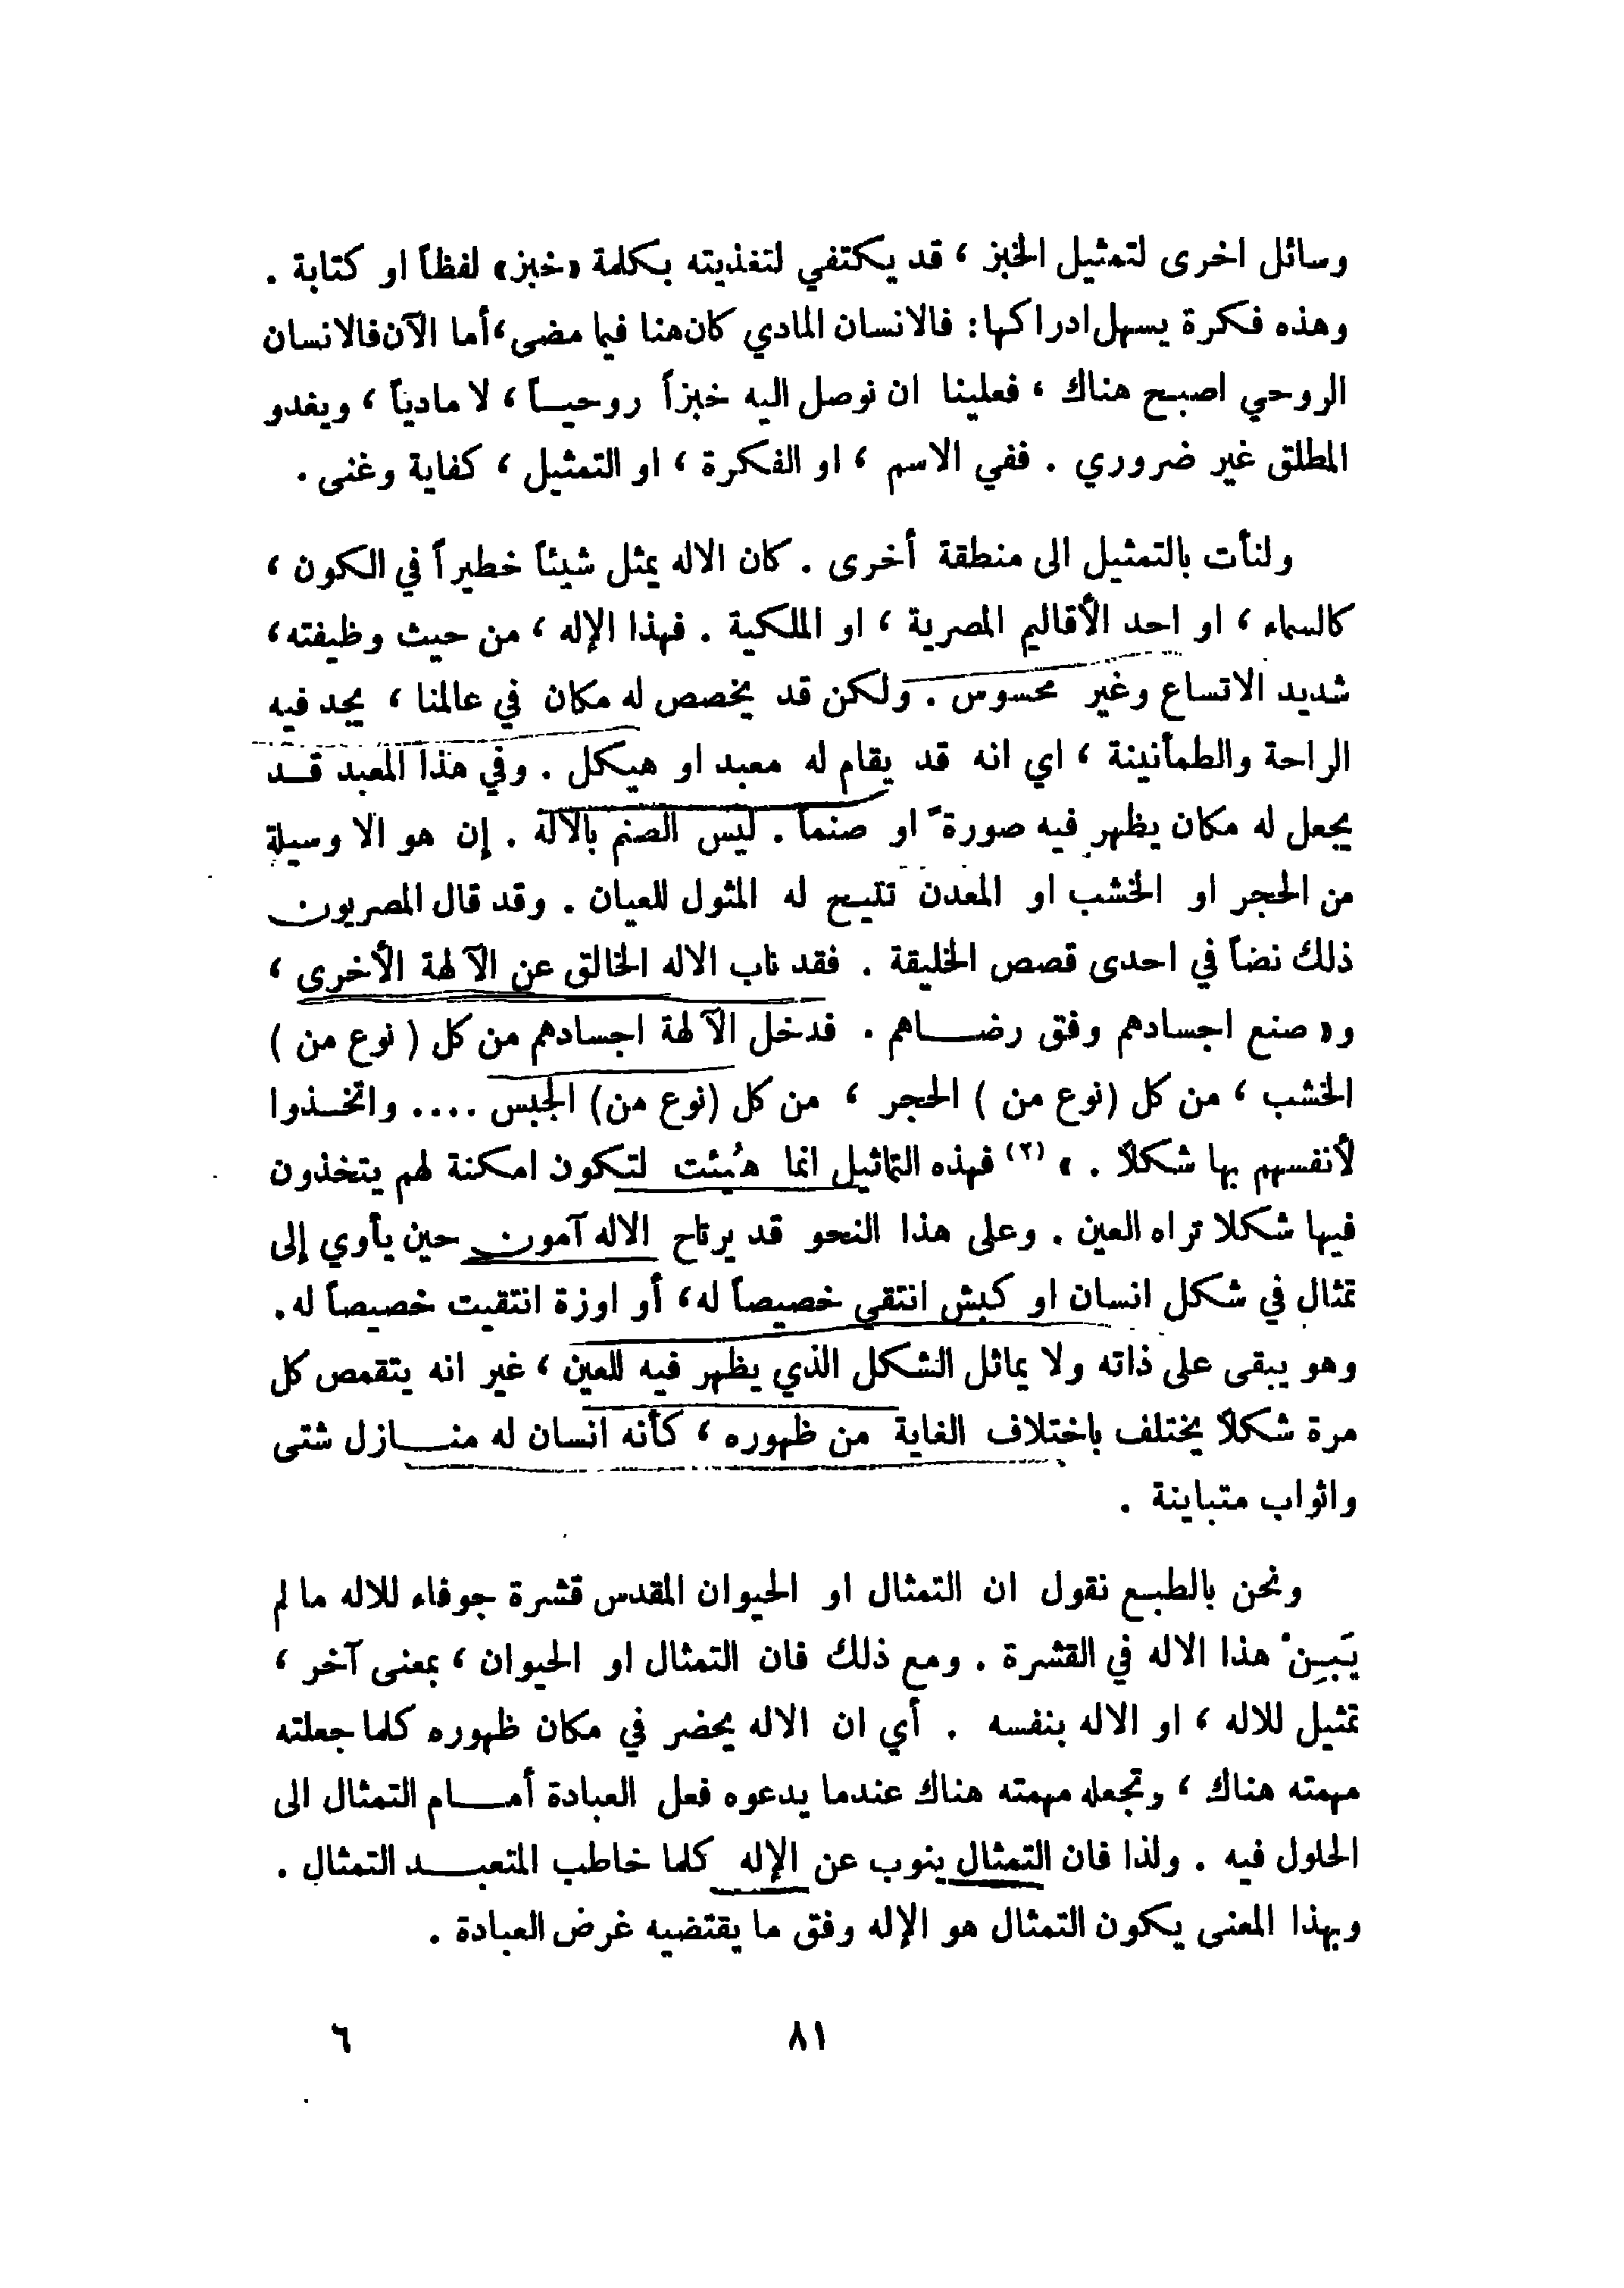 وسائل اخرى لتمثيل الخبز ، قد يكتفي لتغذيته بكلمة «خبز» لفظاً او كتابة .
وهذه فكرة يسهل ادراكها: فالانسان المادي كان هنا فيما مضى، أما الآن فالانسان
الروحي اصبح هناك ، فعلينا ان نوصل اليه خبزاً روحيـاً ، لا مادياً ، ويغدو
المطلق غير ضروري . ففي الاسم ، او الفكرة ، او التمثيل ، كفاية وغنى .
ولنأت بالتمثيل الى منطقة أخرى . كان الاله يمثل شيئاً خطيراً في الكون ،
كالسماء ، او احد الأقاليم المصرية ، او الملكية . فهذا الإله ، من حيث وظيفته،
شديد الاتساع وغير محسوس . ولكن قد يخصص له مكان في عالمنا ، يجد فيه
الراحة والطمأنينة ، اي انه قد يقام له معبد او هيكل . وفي هذا المعبد قـد
يجعل له مكان يظهر فيه صورةً او صنماً . ليس الصنم بالاله . إن هو الا وسيلة
من الحجر او الخشب او المعدن تتيـح له المثول للعيان . وقد قال المصريون
ذلك نضاً في احدى قصص الخليقة . فقد ناب الاله الخالق عن الآلهة الأخرى ،
و« صنع اجسادهم وفق رضـاهم . فدخل الآلهة اجسادهم من كل ( نوع من )
الخشب ، من كل (نوع من ) الحجر ، من كل (نوع من) الجبس .... واتخـذوا
لأنفسهم بها شكلاً . » (٢) فهذه التماثيل انما هُيئت لتكون امكنة لهم يتخذون
فيها شكلا تراه العين . وعلى هذا النحو قد يرتاح الاله آمون حين يأوي إلى
تمثال في شكل انسان او كبش انتقي خصيصاً له، أو اوزة انتقيت خصيصاً له.
وهو يبقى على ذاته ولا يماثل الشكل الذي يظهر فيه للعين ، غير انه يتقمص كل
مرة شكلاً يختلف باختلاف الغاية من ظهوره ، كأنه انسان له منـازل شتى
واثواب متباينة .
ونحن بالطبـع نقول ان التمثال او الحيوان المقدس قشرة جوفاء للاله ما لم
يَبـِنْ هذا الاله في القشرة . ومع ذلك فان التمثال او الحيوان ، بمعنى آخر ،
تمثيل للاله ، او الاله بنفسه . أي ان الاله يحضر في مكان ظهوره كلما جعلته
مهمته هناك ، وتجعله مهمته هناك عندما يدعوه فعل العبادة أمـام التمثال الى
الحلول فيه . ولذا فان التمثال ينوب عن الإله كلما خاطب المتعبـد التمثال .
وبهذا المعنى يكون التمثال هو الإله وفق ما يقتضيه غرض العبادة .
٨١
٦